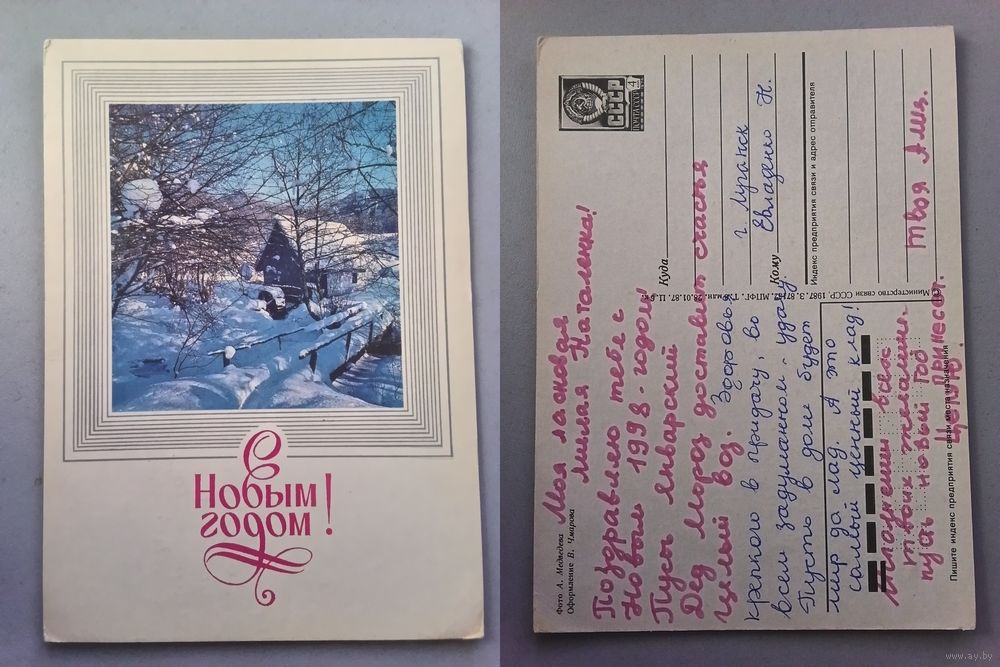 С
Новым
годом!
Фото А. Медведева
Оформление В. Чмарова
Моя ласковая
милая Наталешка!
Поздравляю тебя с
Новым 1998-годом!
Пусть январский
Дед Мороз доставит счастья
целый воз.
Здоровья
крепкого в придачу, во
всем задуманном-удачу.
Пусть в доме будет
мир да лад. А это
самый ценный клад!
исполнения всех
твоих желаний.
пусть новый год
принесет.
Целую.
Твоя Алис.
ПОЧТА СССР
4
СССР
Куда
г. Луганск
Евладенко Н.
Кому
Индекс предприятия связи и адрес отправителя
© Министерство связи СССР, 1987. З. 87187. МПФГ.
28.01.87
Пишите индекс предприятия связи места назначения
www.ay.by